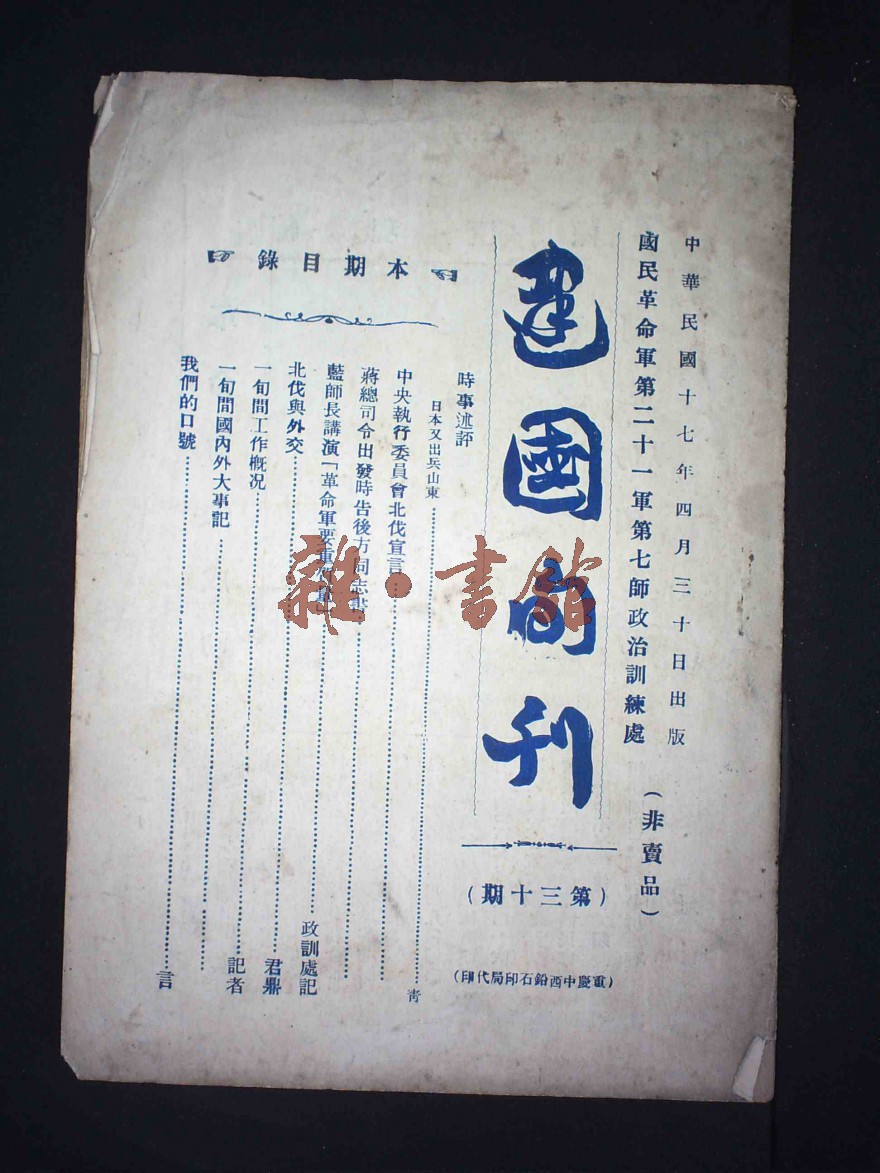 中華民國十七年四月三十日出版
國民革命軍第二十一軍第七師政治訓練處(非賣品)
建國旬刊
(第三十期)
(重慶中西鉛石印局代印)
本期目錄
時事述評
日本又出兵山東……青
中央執行委員會北伐宣言……
蔣總司令出發時告後方同志書……
藍師長講演「革命軍要重……政訓處記
北伐與外交……君鼎
一旬間工作概況……記者
一旬間國內外大事記……
我們的口號……言
雜·書館